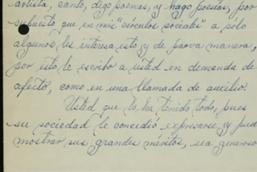 artista, canto, digo poemas, y hago poesías, por
supuesto que en mis "círculos sociales" a solo
algunos les interesa esto y de parva manera,
por esto, le escribo a usted en demanda de
afecto, como en una llamada de auxilio.
Usted que lo ha tenido todo, pues
su sociedad le concedió expresarse, y pudo
mostrar sus grandes méritos, sea generoso